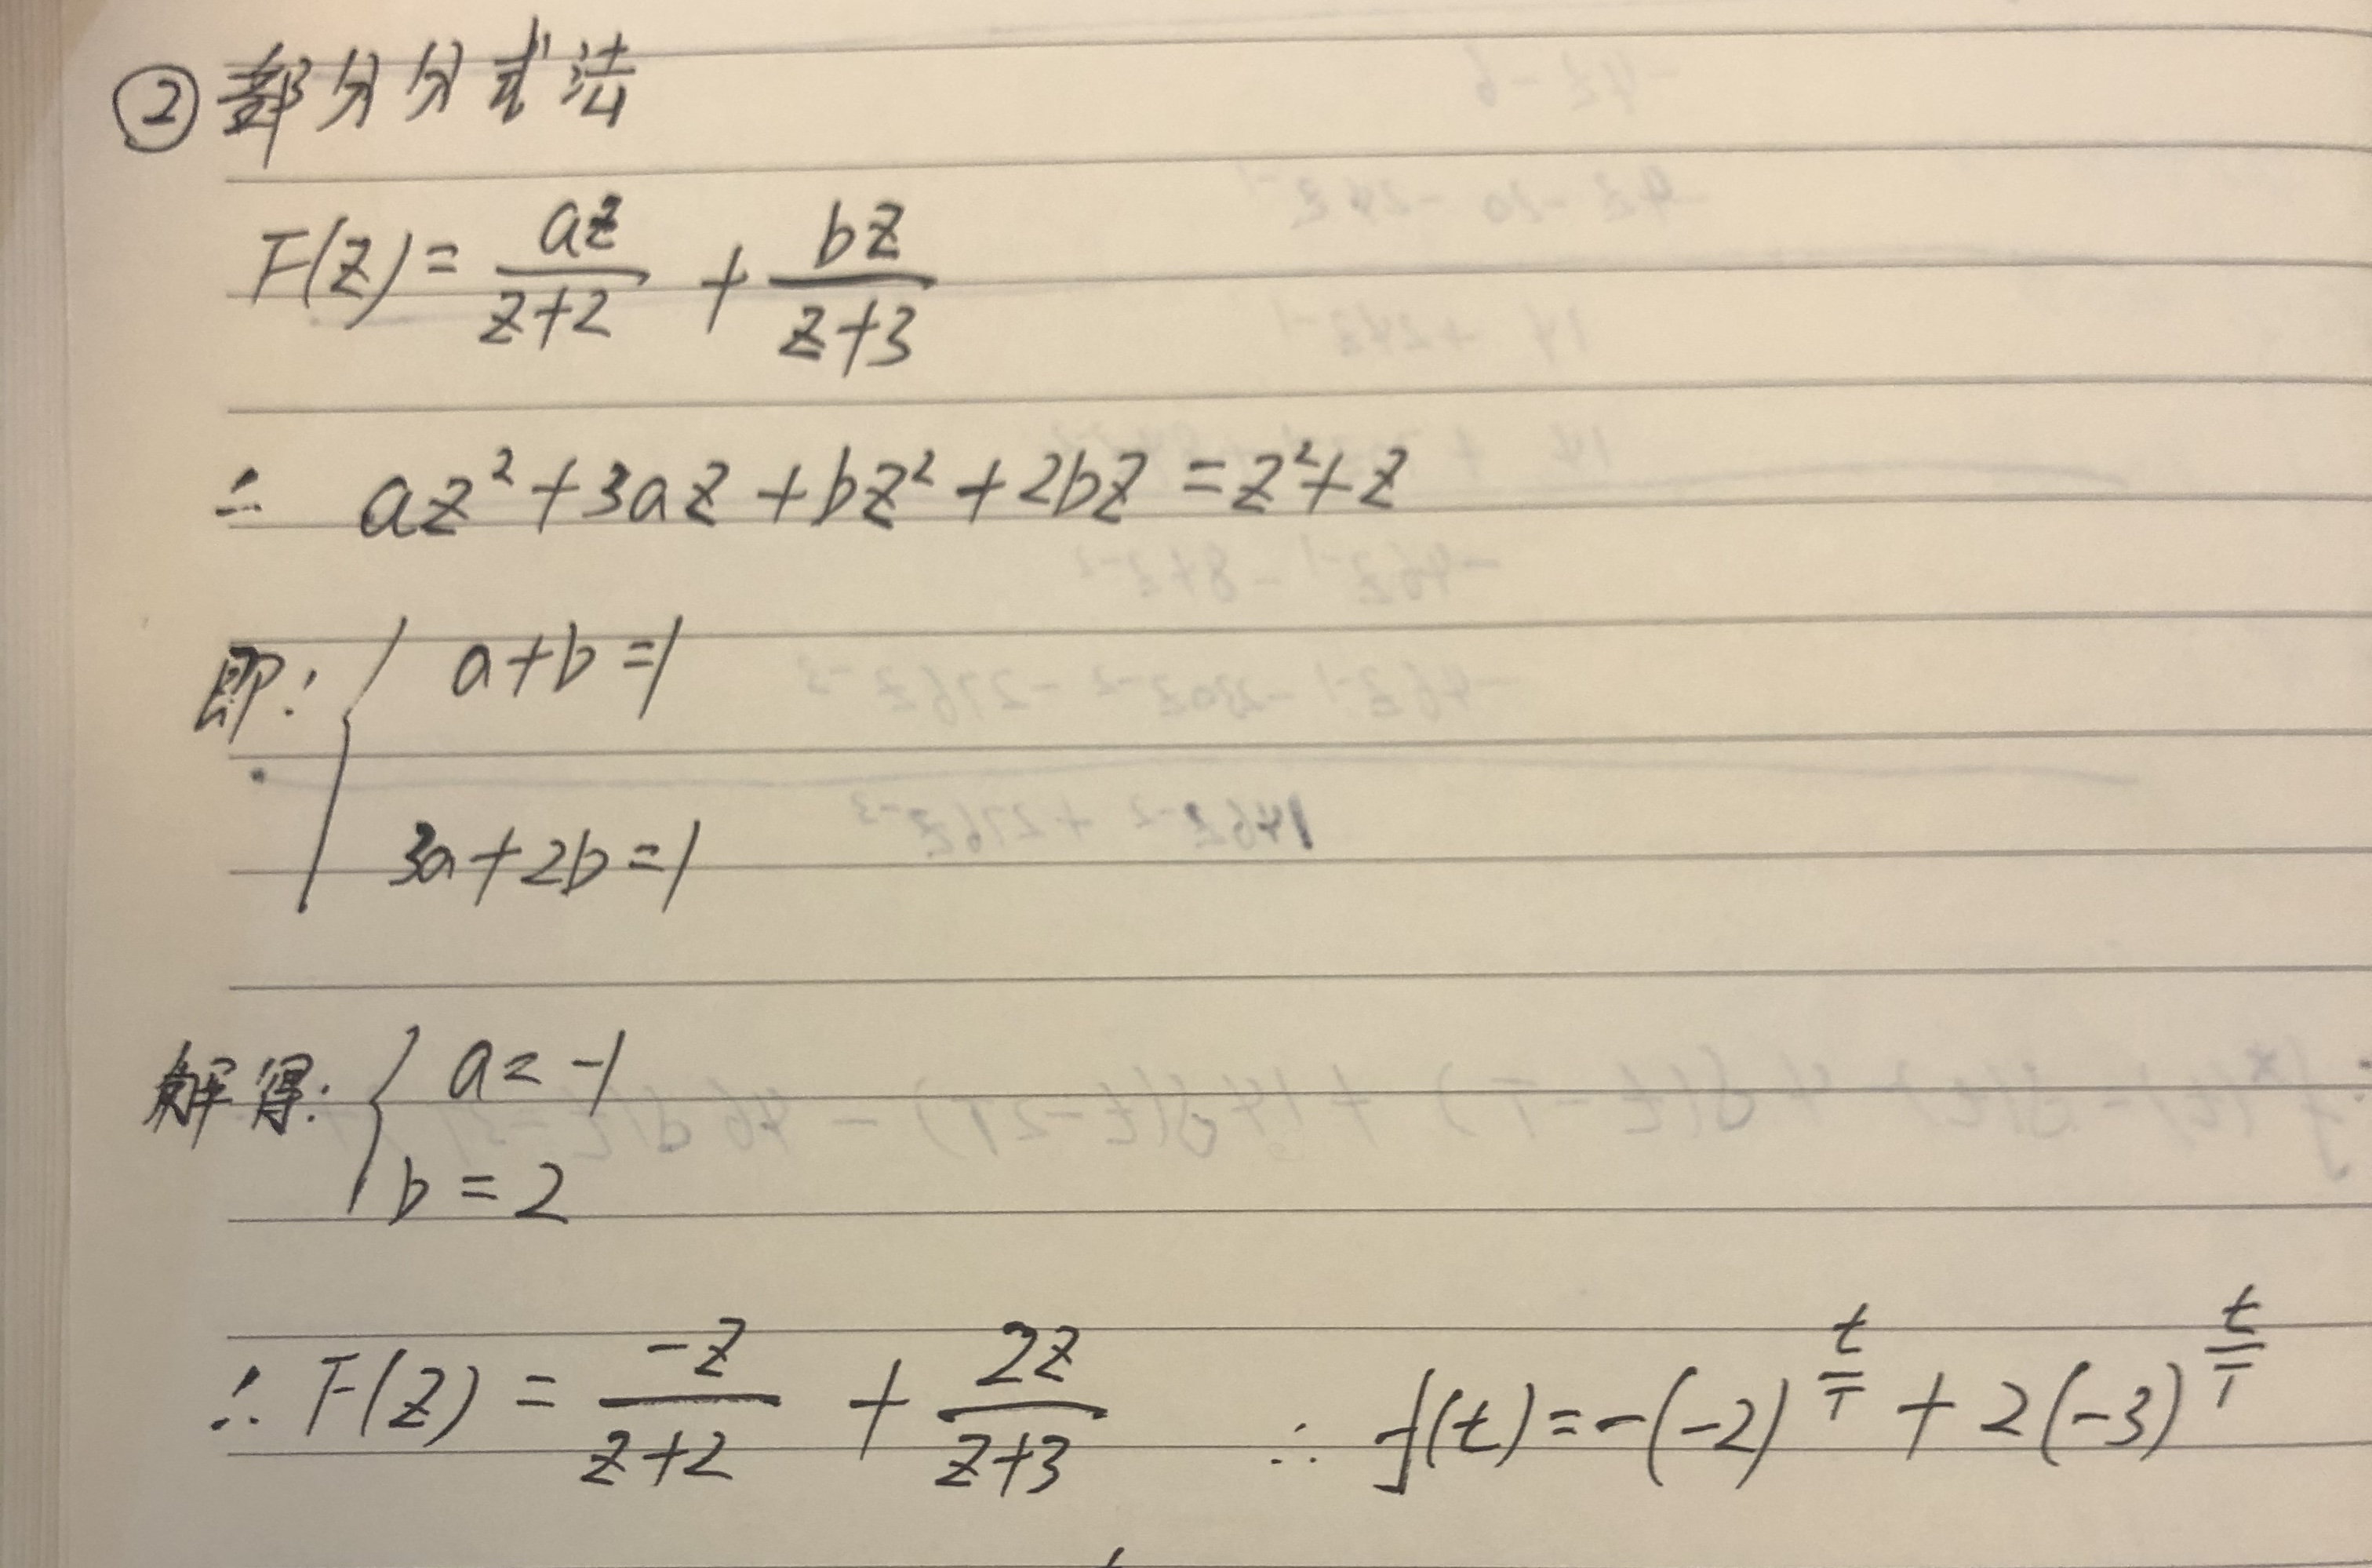 ② 部分分式法
F(z) = az/(z+2) + bz/(z+3)
∴ az² + 3az + bz² + 2bz = z² + z
即: { a+b=1
3a+2b=1
解得: { a=-1
b=2
∴ F(z) = -z/(z+2) + 2z/(z+3) ∴ f(t) = -(-2)^(t/T) + 2(-3)^(t/T)